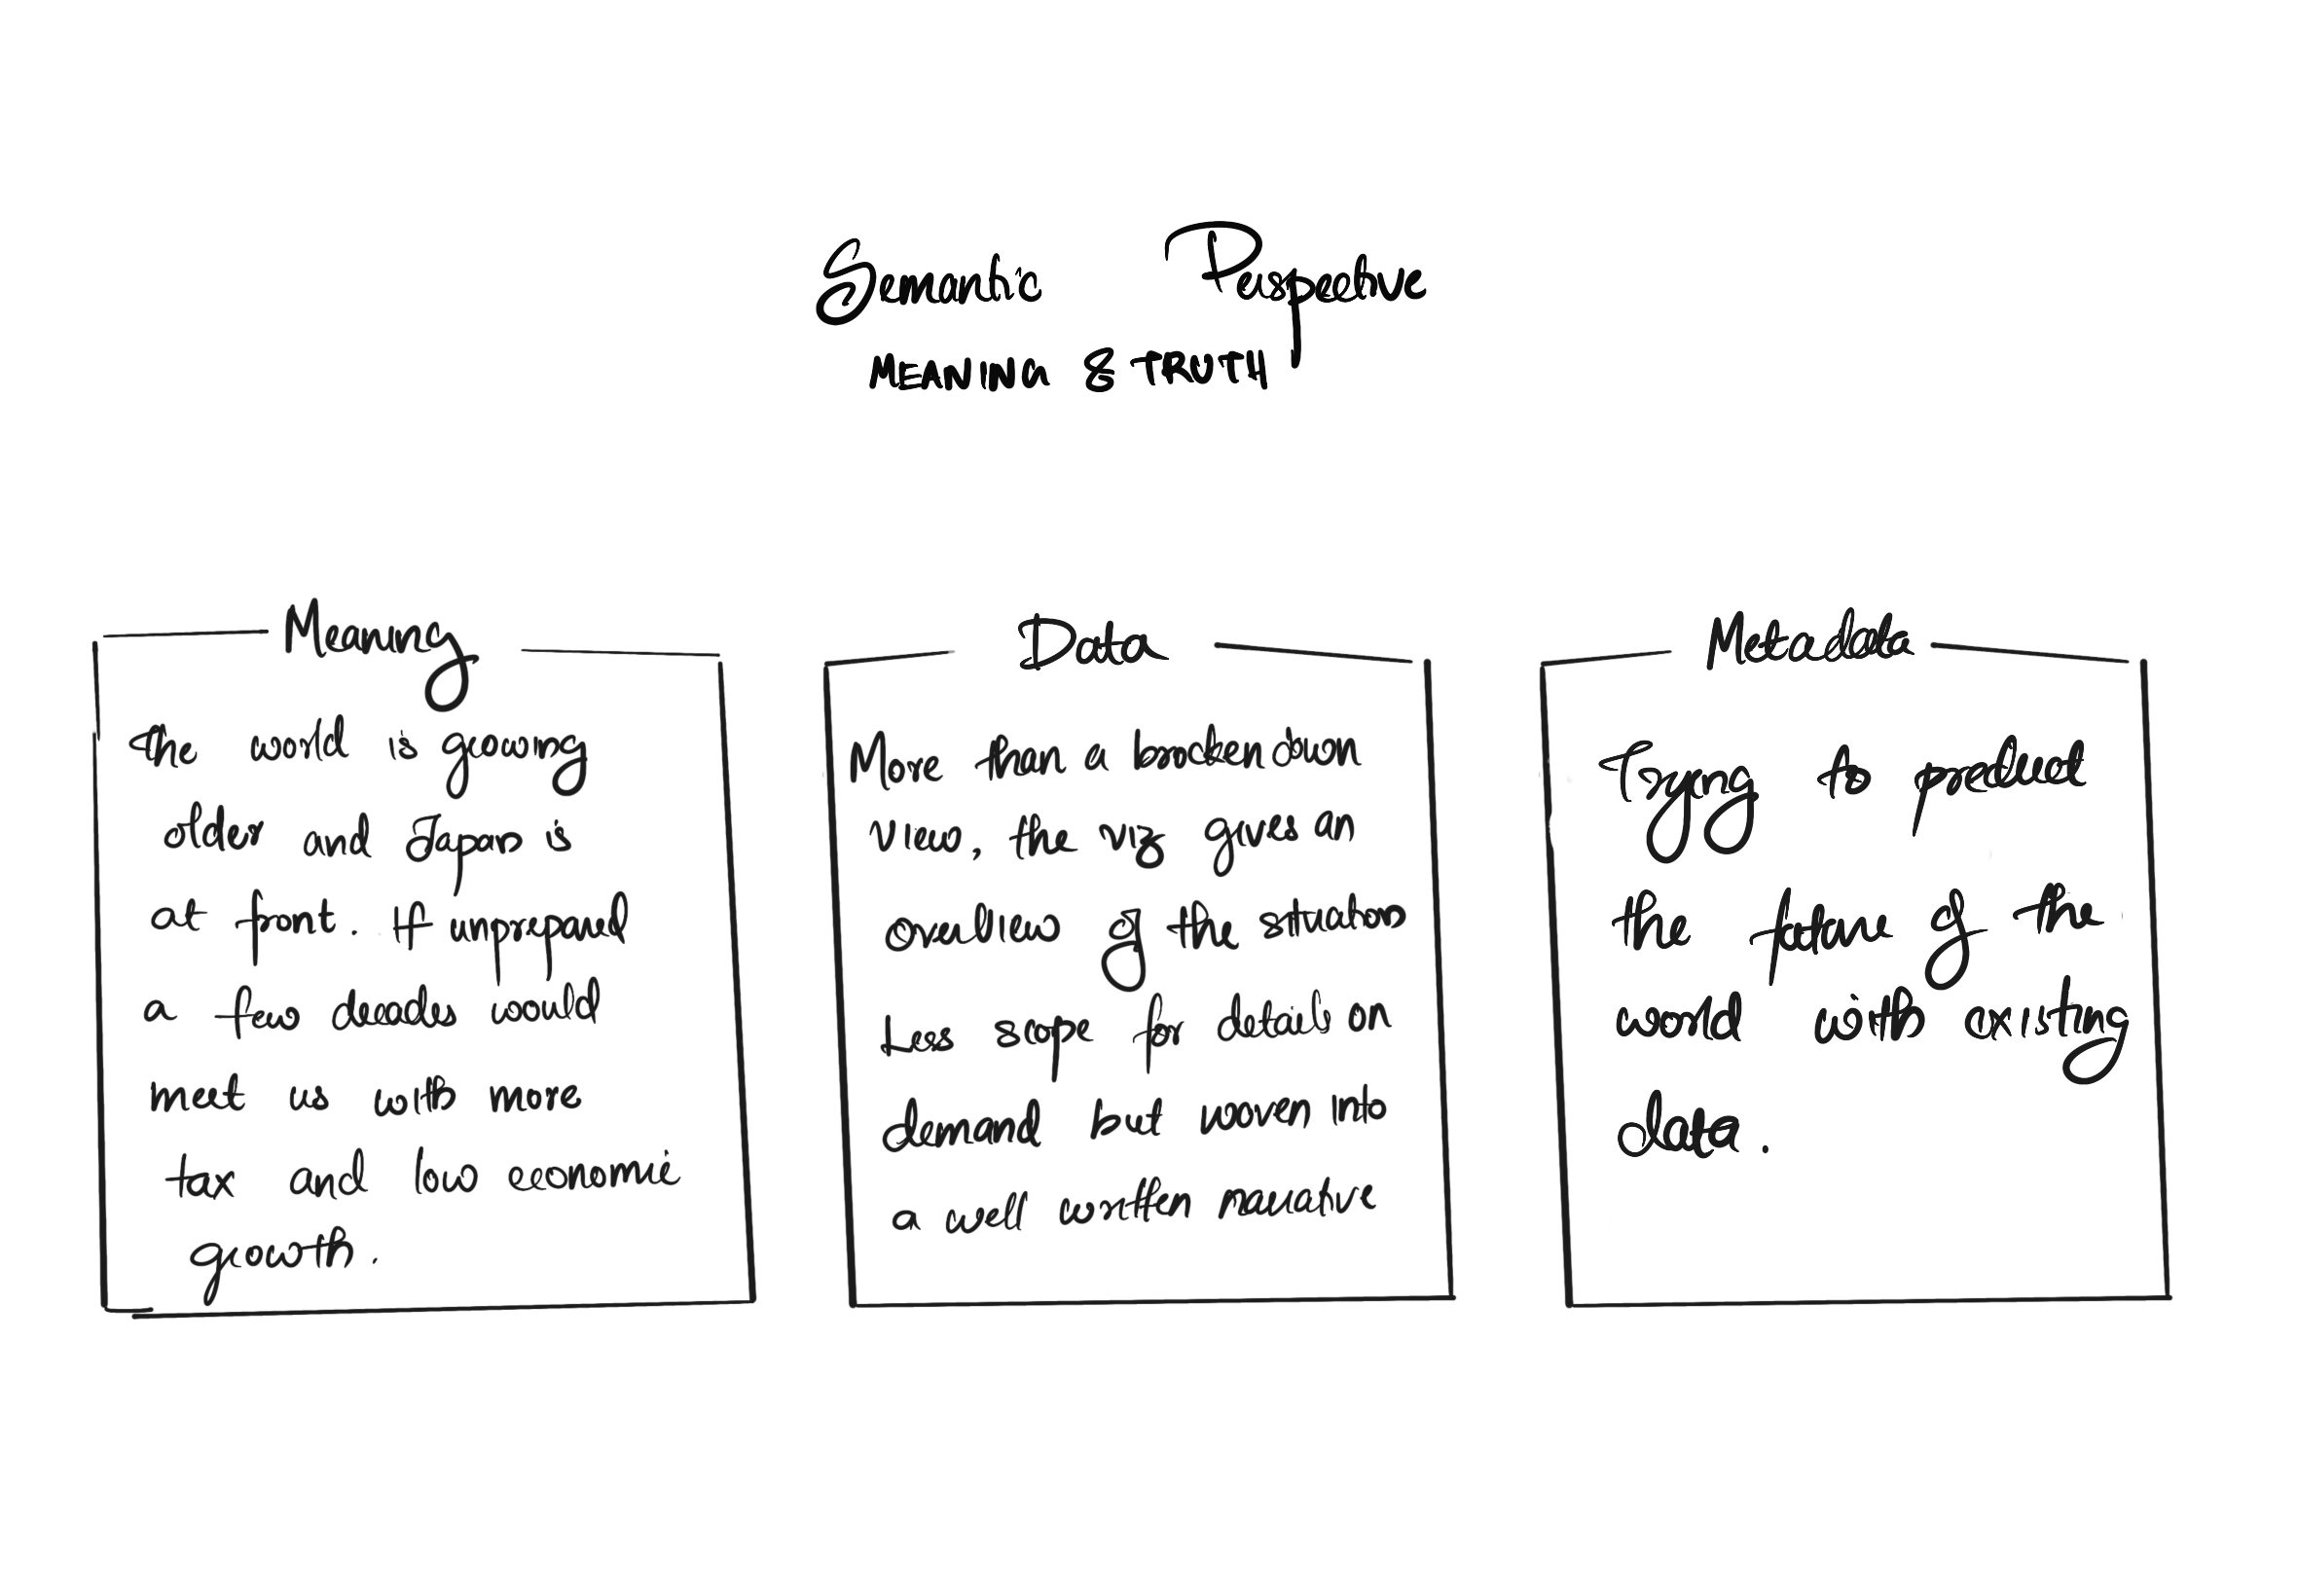 Semantic Perspective
MEANING & TRUTH
Meaning
The world is growing
older and Japan is
at front. If unprepared
a few decades would
meet us with more
tax and low economic
growth.
Data
More than a brocken down
view, the viz gives an
overview of the situation
Less scope for details on
demand but woven into
a well written narrative
Metadata
Trying to predict
the future of the
world with existing
data.